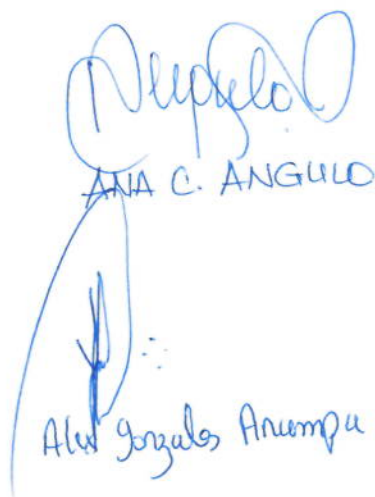 Angulo
ANA C. ANGULO
Alex Gonzales Anampa